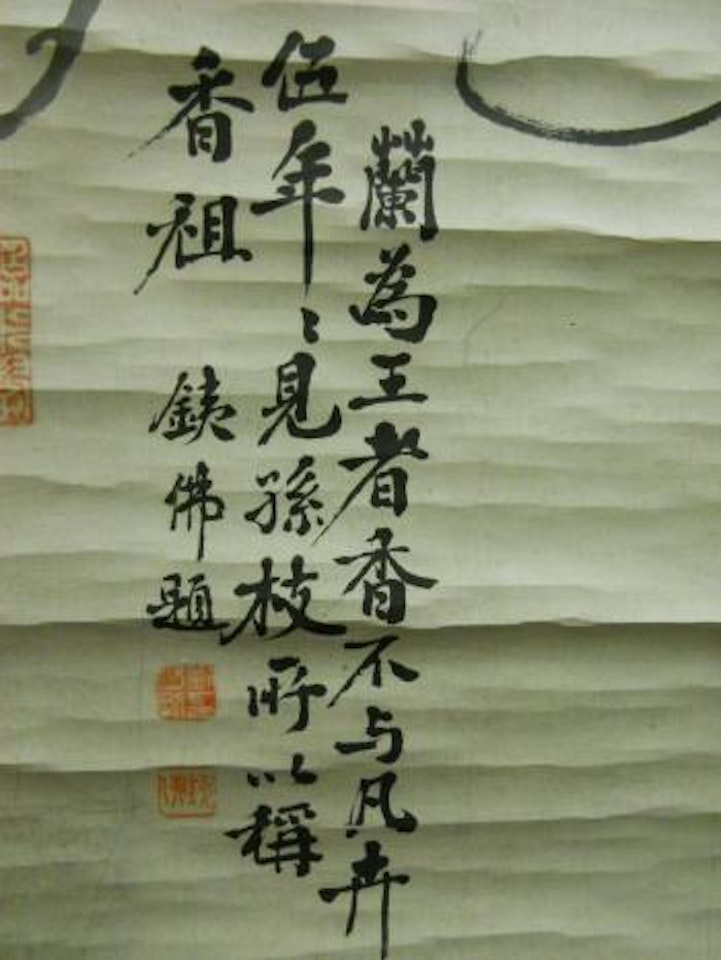 蘭為王者香不与凡卉
伍年〻見孫枝所以稱
香祖
銕佛題